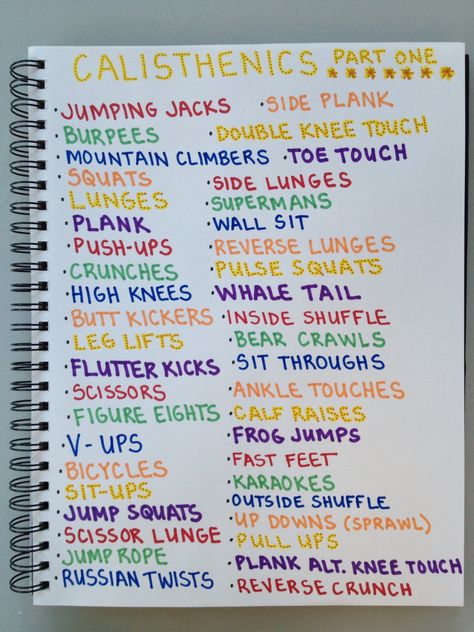 CALISTHENICS PART ONE
• JUMPING JACKS
• BURPEES
• MOUNTAIN CLIMBERS
• SQUATS
• LUNGES
• PLANK
• PUSH-UPS
• CRUNCHES
• HIGH KNEES
• BUTT KICKERS
• LEG LIFTS
• FLUTTER KICKS
• SCISSORS
• FIGURE EIGHTS
• V-UPS
• BICYCLES
• SIT-UPS
• JUMP SQUATS
• SCISSOR LUNGE
• JUMP ROPE
• RUSSIAN TWISTS
• SIDE PLANK
• DOUBLE KNEE TOUCH
• TOE TOUCH
• SIDE LUNGES
• SUPERMANS
• WALL SIT
• REVERSE LUNGES
• PULSE SQUATS
• WHALE TAIL
• INSIDE SHUFFLE
• BEAR CRAWLS
• SIT THROUGHS
• ANKLE TOUCHES
• CALF RAISES
• FROG JUMPS
• FAST FEET
• KARAOKES
• OUTSIDE SHUFFLE
• UP DOWNS (SPRAWL)
• PULL UPS
• PLANK ALT. KNEE TOUCH
• REVERSE CRUNCH